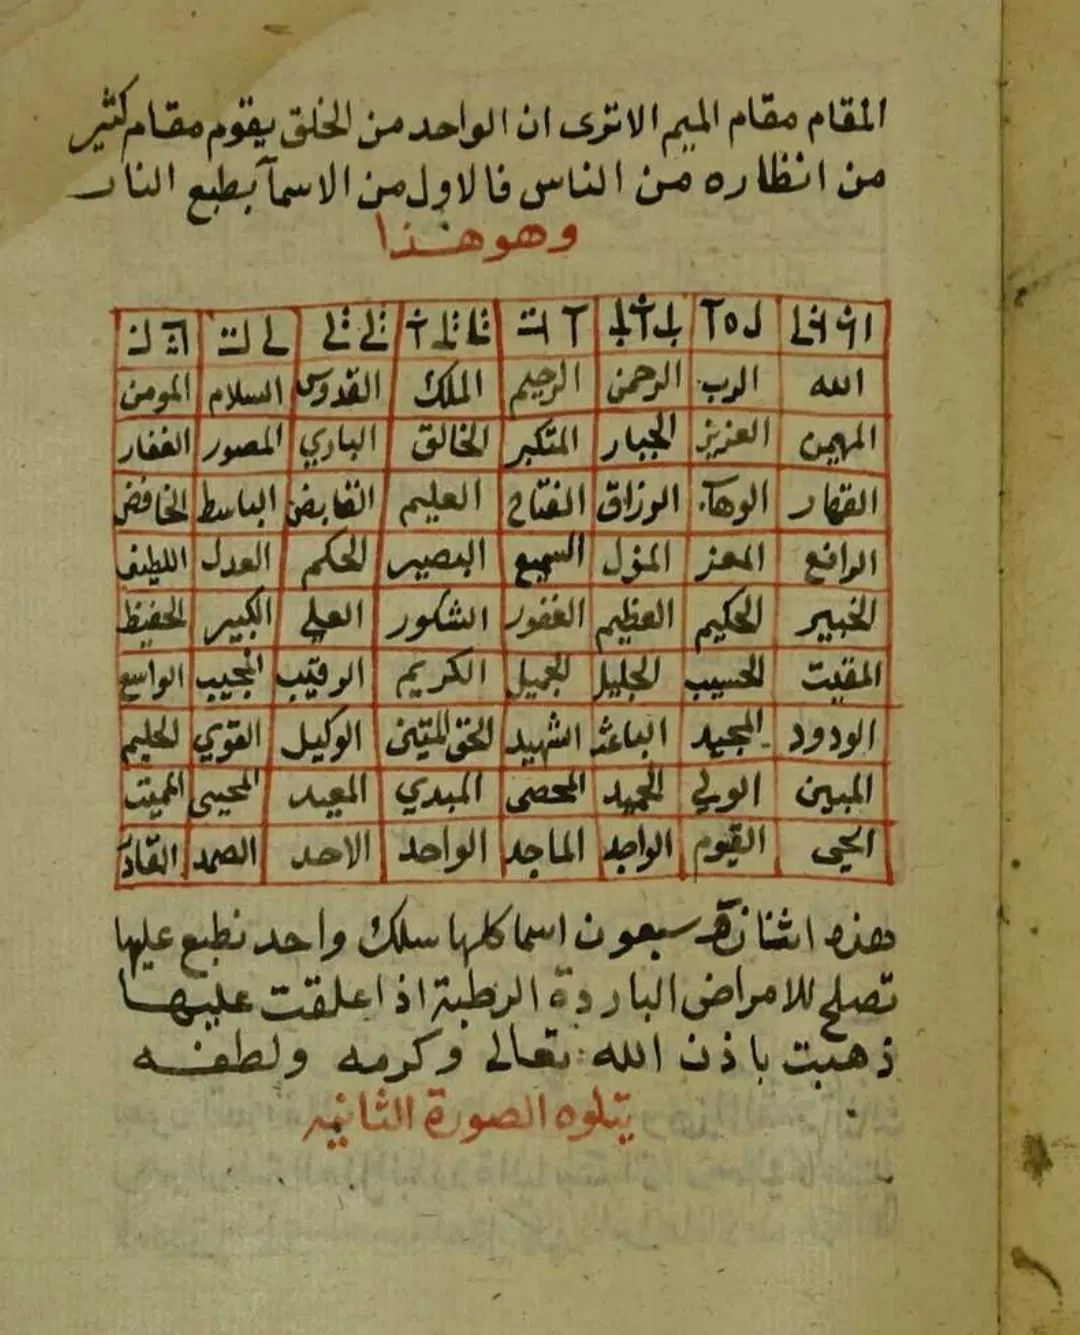 المقام مقام الميم الاترى ان الواحد من الخلق يقوم مقام كثير
من انظاره من الناس فالاول من الاسمآ بطبع النار
وهو هذا
الله الرب الرحمن الرحيم الملك القدوس السلام المومن
المهيمن العزيز الجبار المتكبر الخالق الباري المصور الغفار
القهار الوهآب الرزاق الفتاح العليم القابض الباسط الخافض
الرافع المعز المذل السميع البصير الحكم العدل اللطيف
الخبير الحكيم العظيم الغفور الشكور العلي الكبير الحفيظ
المقيت الحسيب الجليل الجميل الكريم الرقيب المجيب الواسع
الودود المجيد الباعث الشهيد الحق المتين الوكيل القوي الحليم
المبين الولي الحميد المحصى المبدي المعيد المحيى المميت
الحيى القيوم الواجد الماجد الواحد الاحد الصمد القادر
هذه اثنان سبعون اسما كلها سلك واحد نطبع عليها
تصلح للامراض الباردة الرطبة اذا علقت عليها
ذهبت باذن الله تعالى وكرمه ولطفه
يتلوه الصورة الثانيه